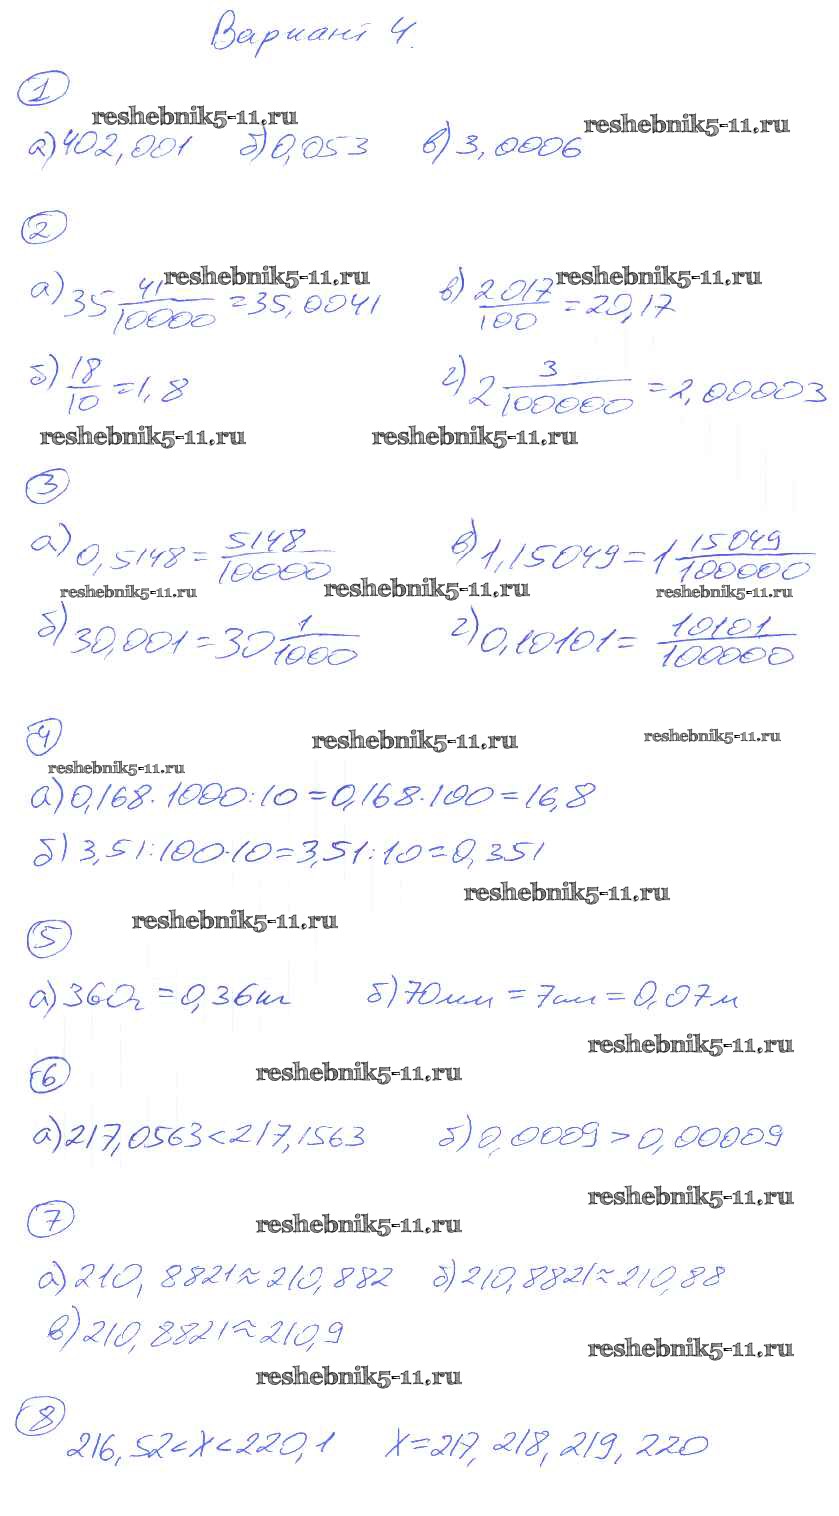 Вариант 4.
1
reshebnik5-11.ru reshebnik5-11.ru
а) 402,001 б) 0,053 в) 3,0006
2
reshebnik5-11.ru reshebnik5-11.ru
а) 35 41/10000 = 35,0041 в) 2017/100 = 20,17
б) 18/10 = 1,8 г) 2 3/100000 = 2,00003
reshebnik5-11.ru reshebnik5-11.ru
3
а) 0,5148 = 5148/10000 в) 1,15049 = 1 15049/100000
reshebnik5-11.ru reshebnik5-11.ru reshebnik5-11.ru
б) 30,001 = 30 1/1000 г) 0,10101 = 10101/100000
4
reshebnik5-11.ru reshebnik5-11.ru
reshebnik5-11.ru
а) 0,168·1000:10 = 0,168·100 = 16,8
б) 3,51:100·10 = 3,51:10 = 0,351
reshebnik5-11.ru
reshebnik5-11.ru
5
а) 360г = 0,36кг б) 70мм = 7см = 0,07м
reshebnik5-11.ru
6
reshebnik5-11.ru
а) 217,0563 < 217,1563 б) 0,0009 > 0,00009
reshebnik5-11.ru
7
reshebnik5-11.ru
а) 210,8821 ≈ 210,882 б) 210,8821 ≈ 210,88
в) 210,8821 ≈ 210,9
reshebnik5-11.ru
reshebnik5-11.ru
8
216,52 < x < 220,1 x = 217, 218, 219, 220